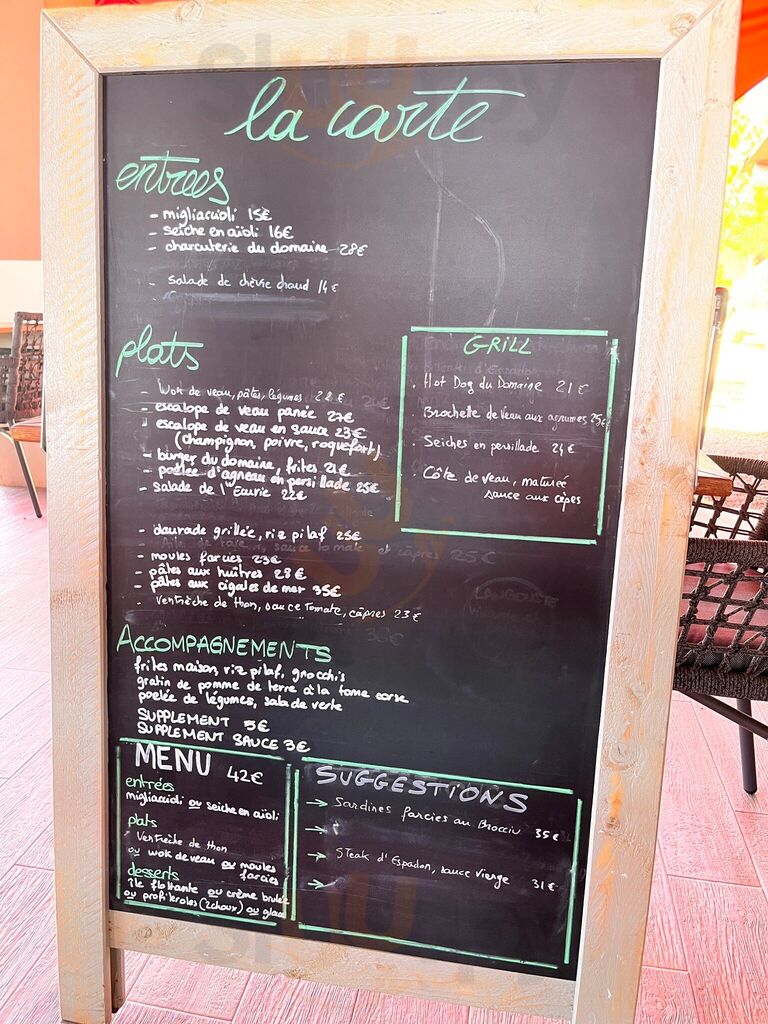 la carte
entrees
- migliaccioli 15€
- seiche en aïoli 16€
- charcuterie du domaine 28€
salade de chèvre chaud 14€
plats
- Wok de veau, pâtes, légumes 22€
- escalope de veau panée 27€
escalope de veau en sauce 23€
(champignon, poivre, roquefort)
- burger du domaine, frites 21€
- poêlée d'agneau en persillade 25€
- salade de l'Eurie 22€
- daurade grillée, riz pilaf 25€
- moules farcies 23€
- pâtes aux huîtres 28€
- pâtes aux cigales de mer 35€
ventrèche de thon, sauce tomate, câpres 23€
GRILL
. Hot Dog du Domaine 21€
. Brochette de veau aux agrumes 25€
. Seiches en persillade 24€
. Côte de veau, maturée
sauce aux cèpes
LANGOUSTE
ACCOMPAGNEMENTS
frites maison, riz pilaf, gnocchis
gratin de pomme de terre à la tome corse
poelée de légumes, salade verte
SUPPLEMENT 5€
SUPPLEMENT SAUCE 3€
MENU 42€
entrées
migliaccioli ou seiche en aïoli
plats
Ventrèche de thon
ou wok de veau ou moules
farcies
desserts
île flottante ou crème brulée
ou profiteroles (2choux) ou glace
SUGGESTIONS
→ Sardines farcies au Brocciu 35€
→
→ Steak d'Espadon, sauce vierge 31€
→